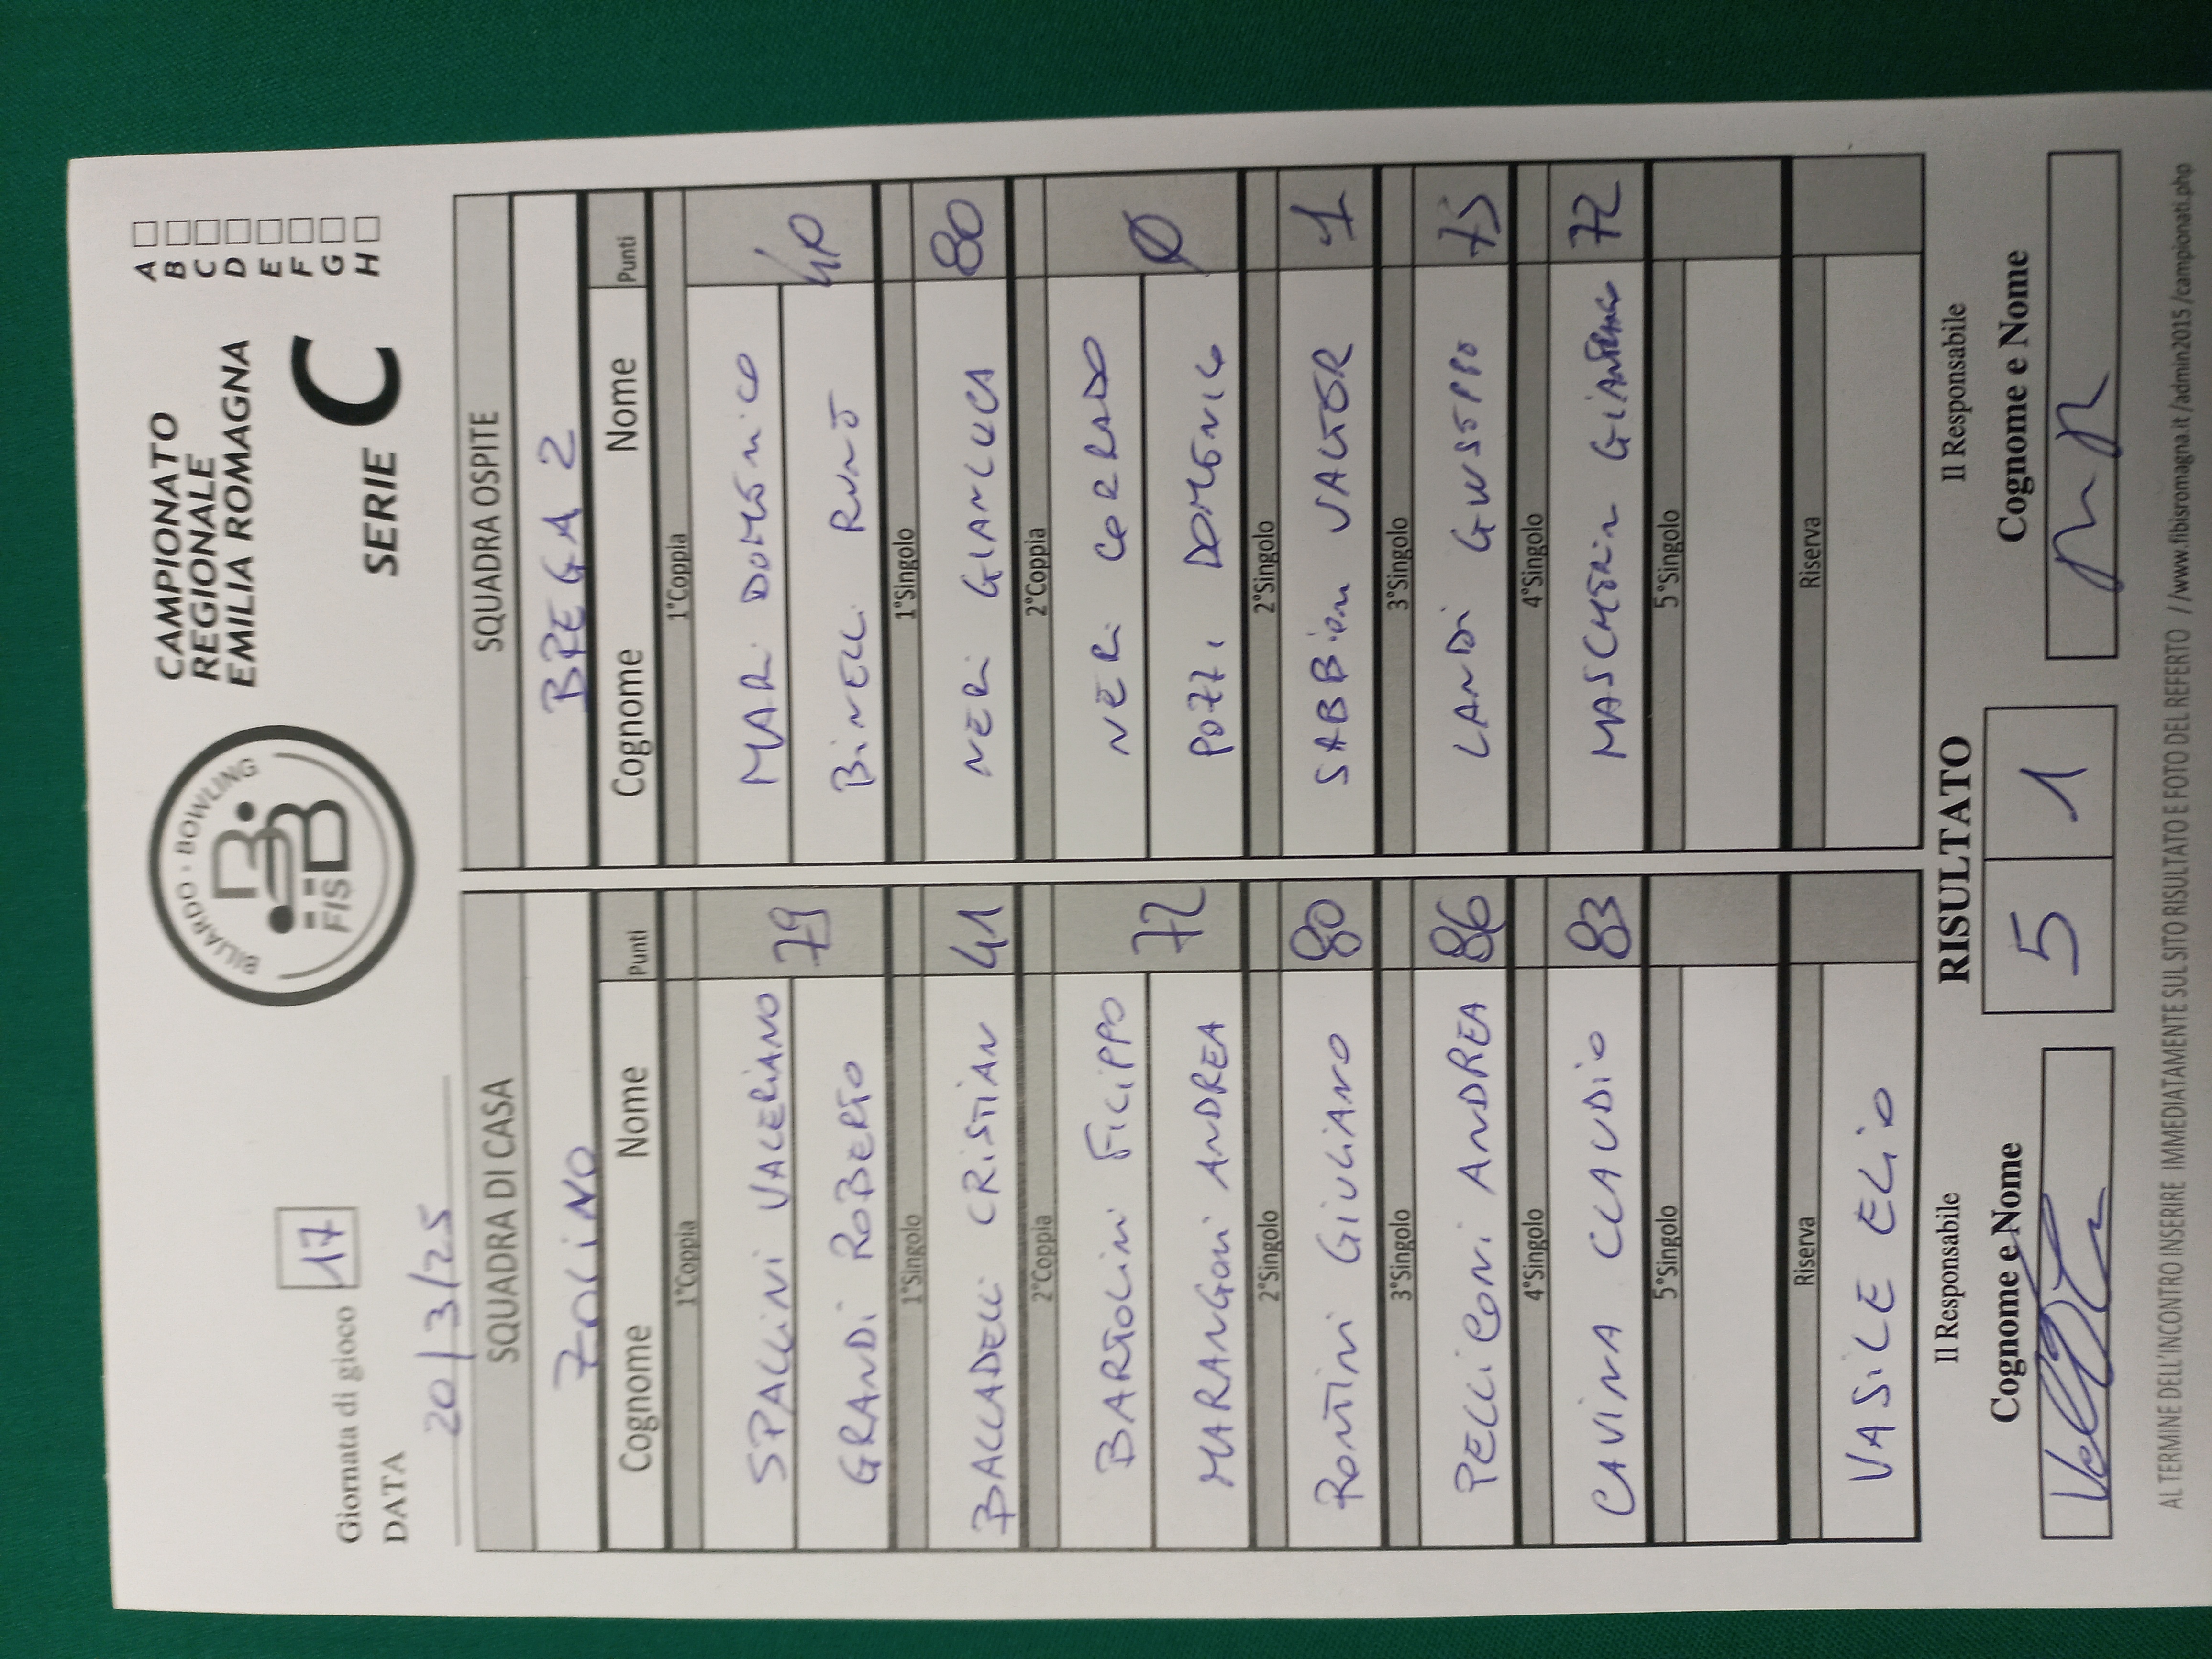 Giornata di gioco 17
DATA 20/3/25
BILIARDO · BOWLING
FISBB
CAMPIONATO
REGIONALE
EMILIA ROMAGNA
SERIE C
A
B
C
D
E
F
G
H
SQUADRA DI CASA
ZOLINO
Cognome Nome Punti
1°Coppia
SPALLINI VALERIANO
GRANDI ROBERTO 79
1°Singolo
BALLADELLI CRISTIAN 41
2°Coppia
BARTOLINI FILIPPO
MARANGONI ANDREA 72
2°Singolo
RONTINI GIULIANO 80
3°Singolo
PELLICONI ANDREA 86
4°Singolo
CAVINA CLAUDIO 83
5°Singolo
Riserva
VASILE ELIO
SQUADRA OSPITE
BREGA 2
Cognome Nome Punti
1°Coppia
MARI DOMENICO
BINELLI 40
1°Singolo
NERI GIANLUCA 80
2°Coppia
NERI CORRADO
POZZI DOMENICO 0
2°Singolo
SABBIONI VALTER 1
3°Singolo
LANDI GIUSEPPE 75
4°Singolo
MASCHERIN 72
5°Singolo
Riserva
Il Responsabile
Cognome e Nome
RISULTATO
5 1
Il Responsabile
Cognome e Nome
AL TERMINE DELL'INCONTRO INSERIRE IMMEDIATAMENTE SUL SITO RISULTATO E FOTO DEL REFERTO //www.fibisromagna.it/admin2015/campionati.php